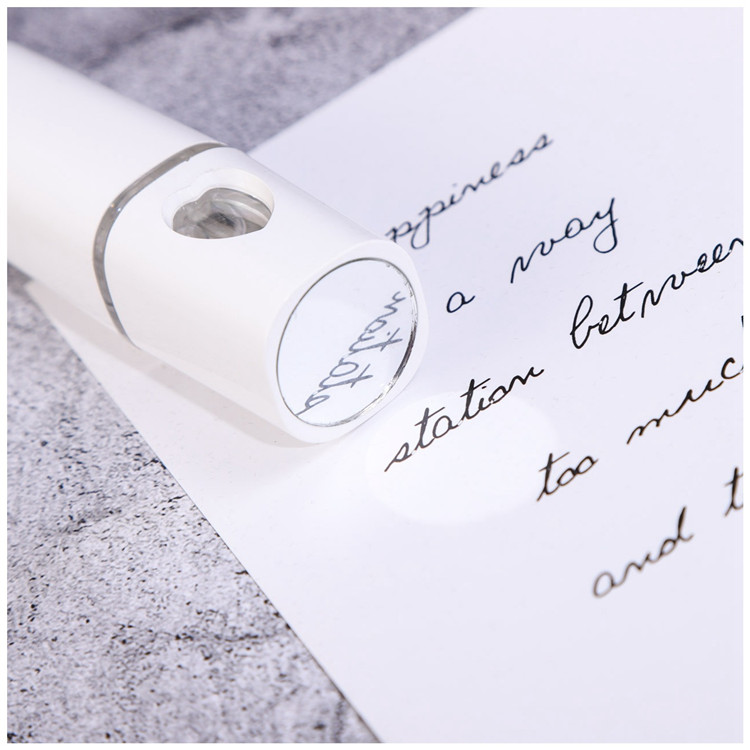 ppiness
a way
station between
too muc
and t